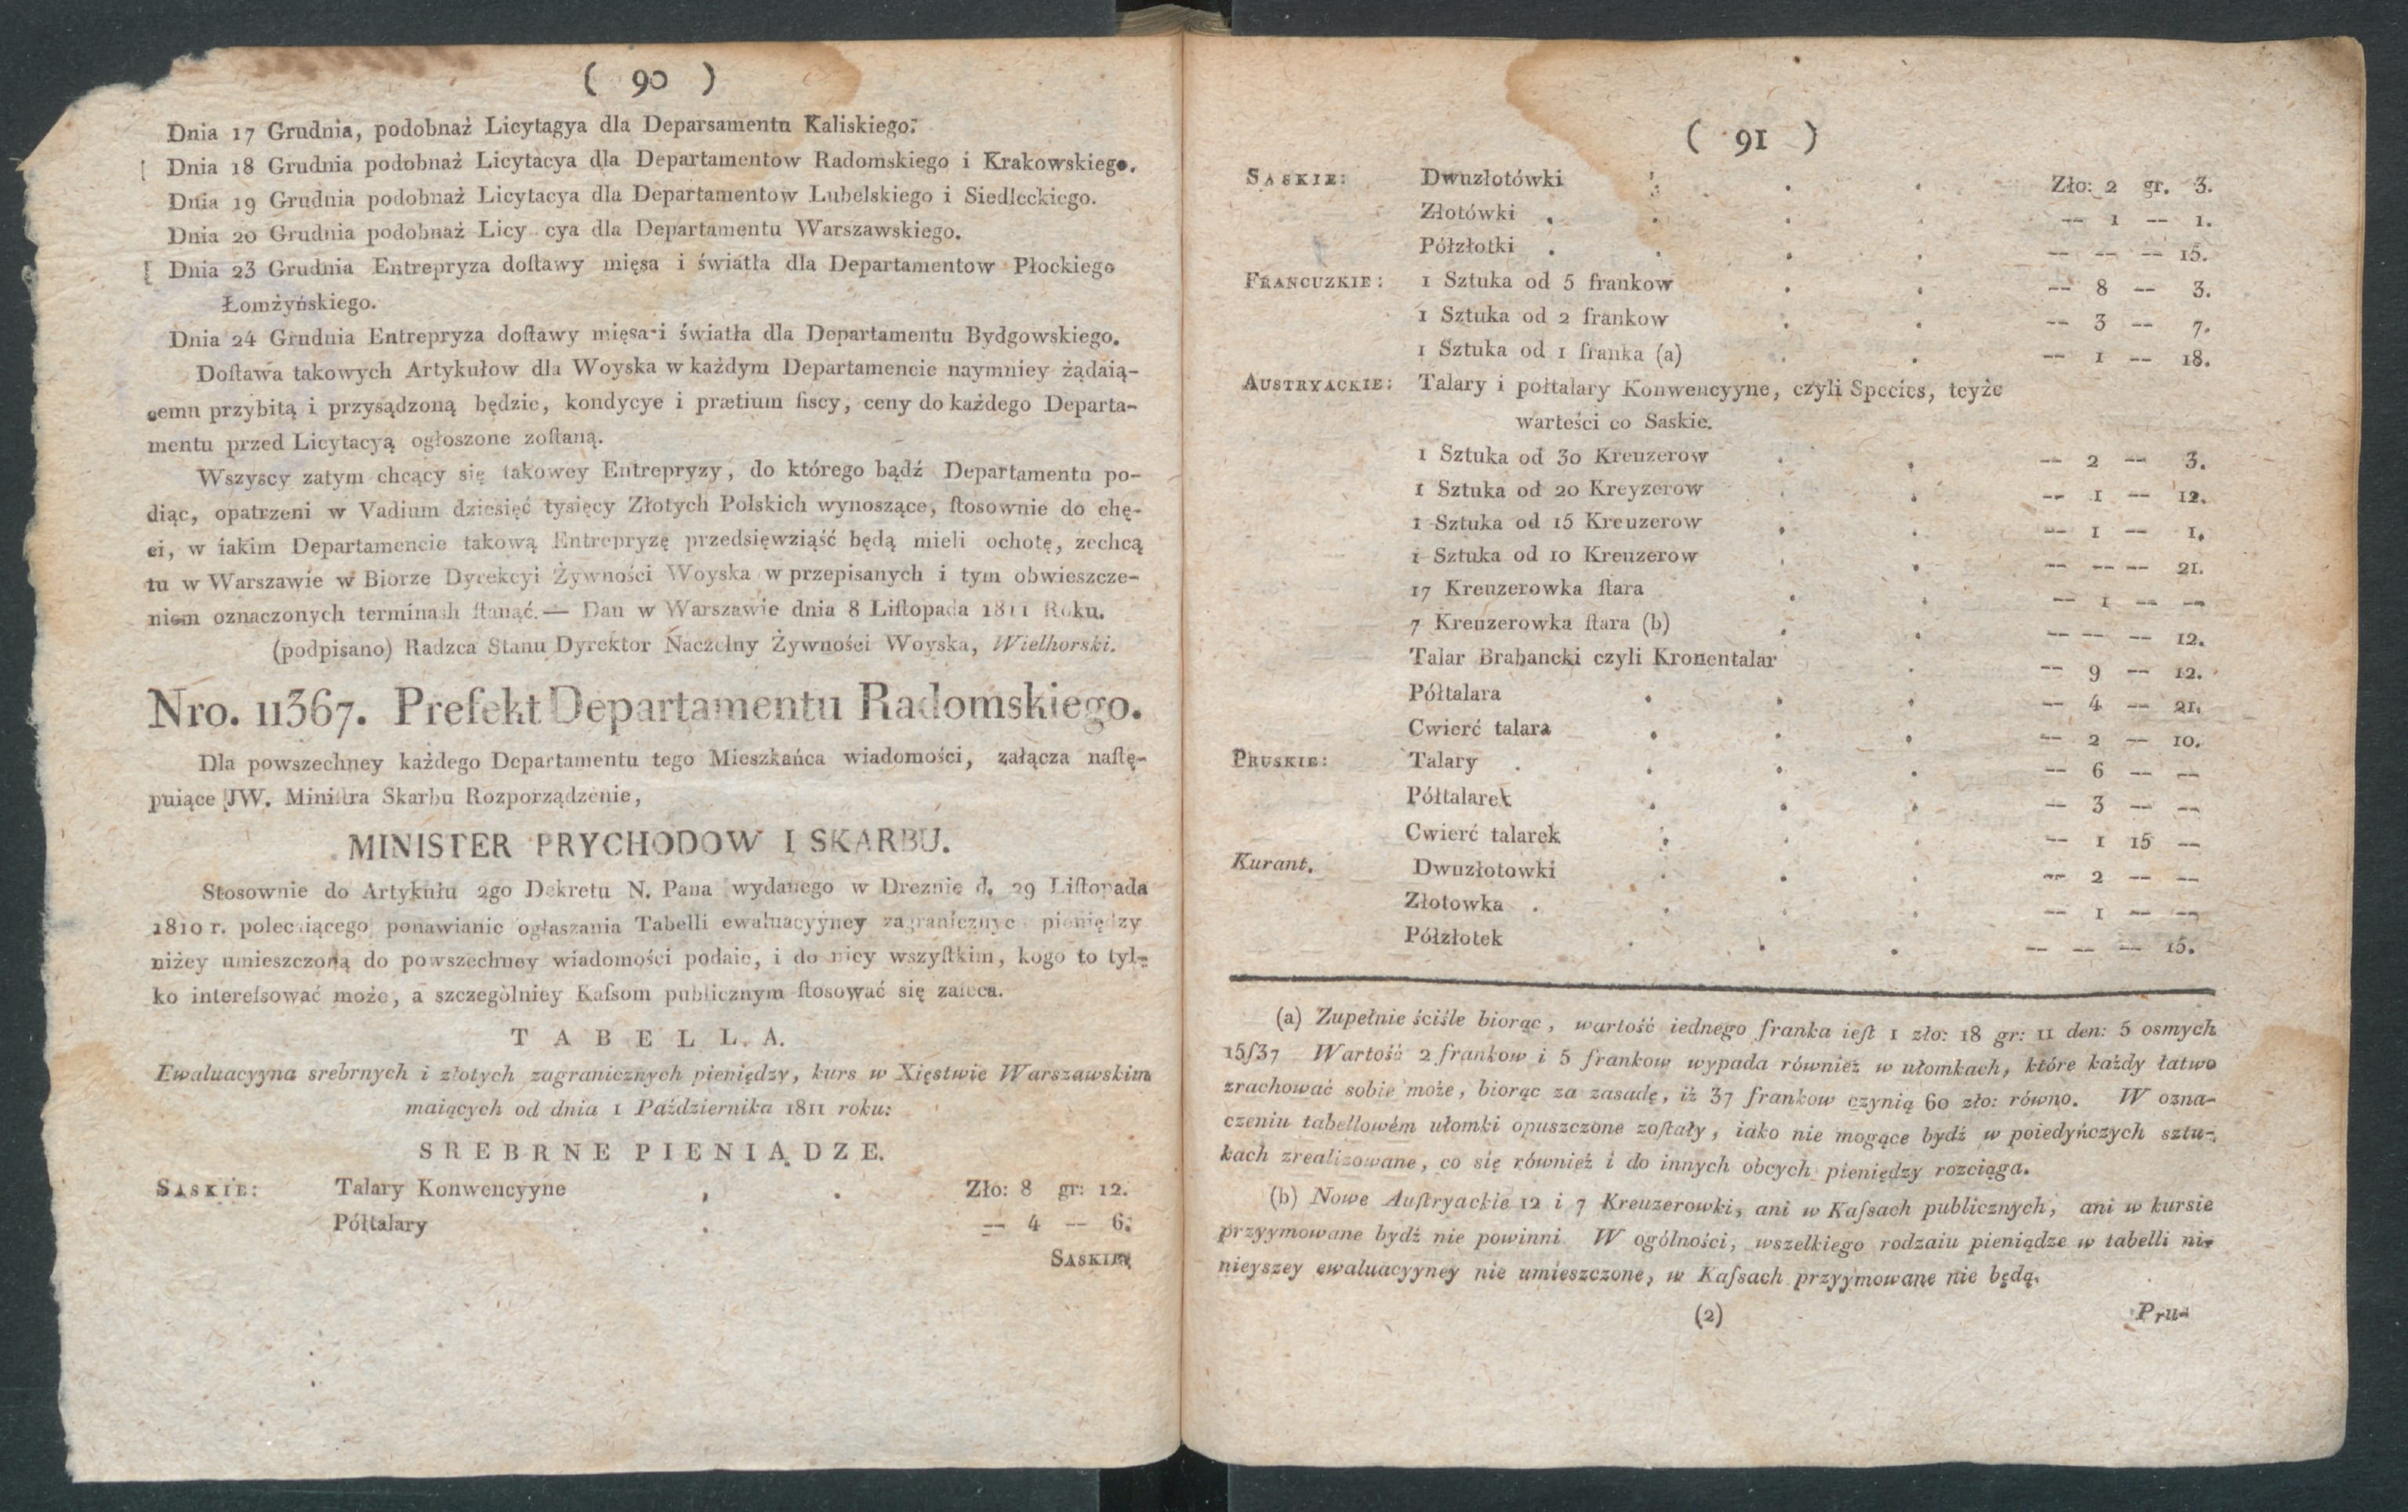 ( 90 )
Dnia 17 Grudnia, podobnaż Licytagya dla Deparsamentu Kaliskiego.
Dnia 18 Grudnia podobnaż Licytacya dla Departamentow Radomskiego i Krakowskiego.
Dnia 19 Grudnia podobnaż Licytacya dla Departamentow Lubelskiego i Siedleckiego.
Dnia 20 Grudnia podobnaż Licy cya dla Departamentu Warszawskiego.
Dnia 23 Grudnia Entrepryza doſtawy mięsa i światła dla Departamentow Płockiego
Łomżyńskiego.
Dnia 24 Grudnia Entrepryza doſtawy mięsa i światła dla Departamentu Bydgowskiego.
Doſtawa takowych Artykułow dla Woyska w każdym Departamencie naymniey żądaią-
cemu przybitą i przysądzoną będzie, kondycye i prætium fiscy, ceny do każdego Departa-
mentu przed Licytacyą ogłoszone zoſtaną.
Wszyscy zatym chcący się takowey Entrepryzy, do którego bądź Departamentu po-
diąc, opatrzeni w Vadium dziesięć tysięcy Złotych Polskich wynoszące, ſtosownie do chę-
ci, w iakim Departamencie takową Entrepryzę przedsięwziąść będą mieli ochotę, zechcą
tu w Warszawie w Biorze Dyrekcyi Żywności Woyska w przepisanych i tym obwieszcze-
niem oznaczonych terminach ſtanąć. — Dan w Warszawie dnia 8 Liſtopada 1811 Roku.
(podpisano) Radzca Stanu Dyrektor Naczelny Żywności Woyska, Wielhorski.
Nro. 11367. Prefekt Departamentu Radomskiego.
Dla powszechney każdego Departamentu tego Mieszkańca wiadomości, załącza naſtę-
puiące JW. Miniſtra Skarbu Rozporządzenie,
MINISTER PRYCHODOW I SKARBU.
Stosownie do Artykułu 2go Dekretu N. Pana wydanego w Dreznie d. 29 Liſtopada
1810 r. polecaiącego ponawianie ogłaszania Tabelli ewaluacyyney zagranicznyc pieniędzy
niżey umieszczoną do powszechney wiadomości podaie, i do niey wszyſtkim, kogo to tyl-
ko intereſsować może, a szczególniey Kaſsom publicznym ſtosować się zaleca.
TABELLA.
Ewaluacyyna srebrnych i złotych zagranicznych pieniędzy, kurs w Xięstwie Warszawskim
maiących od dnia 1 Października 1811 roku:
SREBRNE PIENIĄDZE.
SASKIE: Talary Konwencyyne , . Zło: 8 gr: 12.
Półtalary . — 4 — 6.
SASKIE
( 91 )
SASKIE: Dwuzłotówki . . . Zło: 2 gr. 3.
Złotówki . . . . — 1 — 1.
Półzłotki . . . . — — — 15.
FRANCUZKIE: 1 Sztuka od 5 frankow . . — 8 — 3.
1 Sztuka od 2 frankow . . — 3 — 7.
1 Sztuka od 1 franka (a) . . — 1 — 18.
AUSTRYACKIE: Talary i połtalary Konwencyyne, czyli Species, teyże
warteści co Saskie.
1 Sztuka od 30 Kreuzerow . . — 2 — 3.
1 Sztuka od 20 Kreyzerow . . — 1 — 12.
1 Sztuka od 15 Kreuzerow . . — 1 — 1.
1 Sztuka od 10 Kreuzerow . . — — — 21.
17 Kreuzerowka ſtara . . — 1 — —
7 Kreuzerowka ſtara (b) . . — — — 12.
Talar Brabancki czyli Kronentalar . — 9 — 12.
Półtalara . . . — 4 — 21.
Cwierć talara . . . — 2 — 10.
PRUSKIE: Talary . . . . — 6 — —
Półtalarek . . . — 3 — —
Cwierć talarek . . . — 1 15 —
Kurant. Dwuzłotowki . . . — 2 — —
Złotowka . . . . — 1 — —
Półzłotek . . . — — — 15.
(a) Zupełnie ściśle biorąc, wartość iednego franka ieſt 1 zło: 18 gr: 11 den: 5 osmych
15ſ37 Wartość 2 frankow i 5 frankow wypada również w ułomkach, które każdy łatwo
zrachować sobie może, biorąc za zasadę, iż 37 frankow czynią 60 zło: równo. W ozna-
czeniu tabellowém ułomki opuszczone zoſtały, iako nie mogące bydź w poiedyńczych sztu-
kach zrealizowane, co się również i do innych obcych pieniędzy rozciąga.
(b) Nowe Auſtryackie 12 i 7 Kreuzerowki, ani w Kaſsach publicznych, ani w kursie
przyymowane bydź nie powinni. W ogólności, wszelkiego rodzaiu pieniądze w tabelli ni-
nieyszey ewaluacyyney nie umieszczone, w Kaſsach przyymowane nie będą.
(2) Pru-